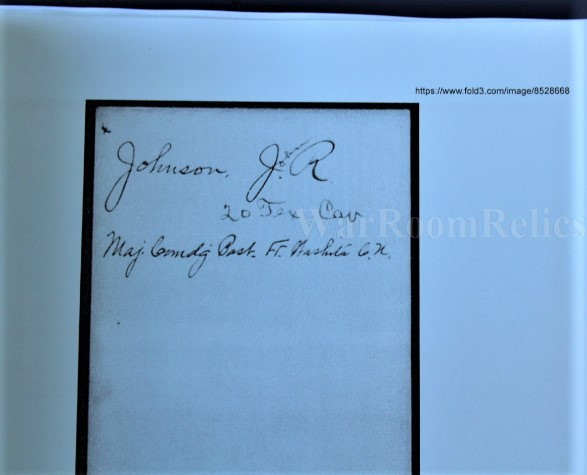 https://www.fold3.com/image/8528668
Johnson, J. R.
20 Tex Cav
WarRoomRelics
Maj. Comdg Post. Ft. Washita C.N.